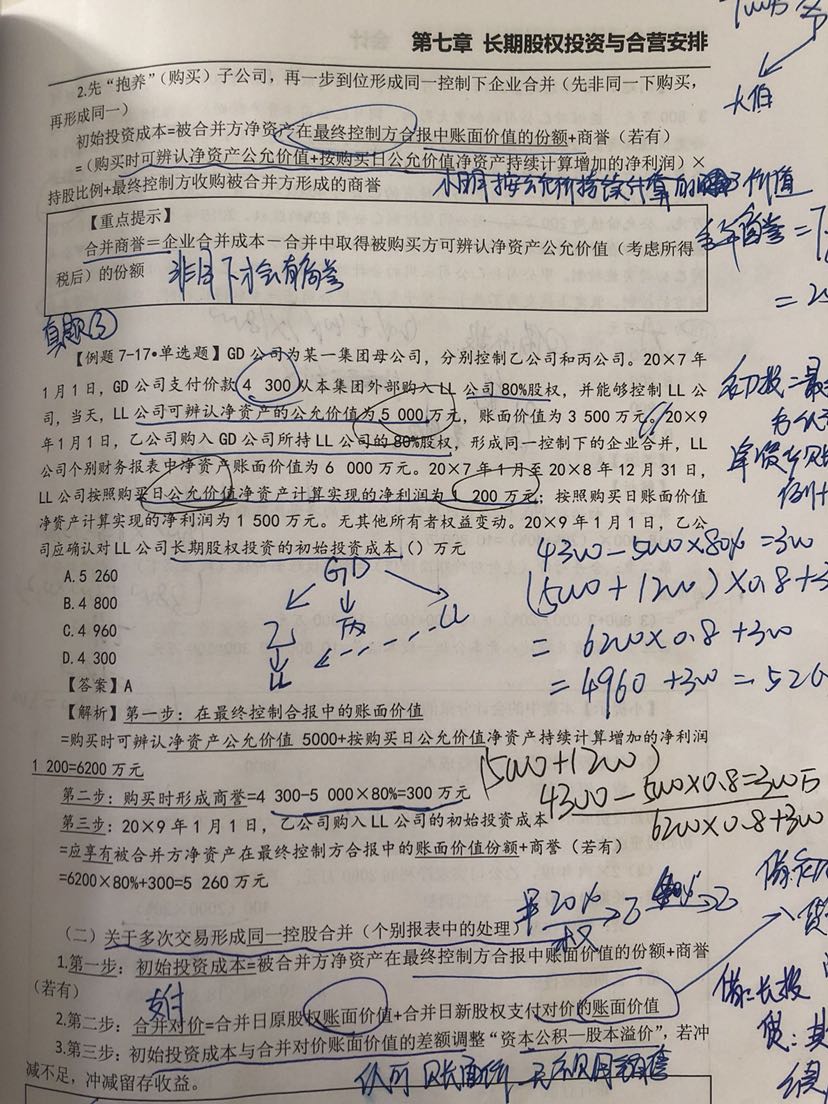 第七章 长期股权投资与合营安排
大伯
2.先“抱养”(购买)子公司，再一步到位形成同一控制下企业合并(先非同一下购买，
再形成同一)
初始投资成本=被合并方净资产在最终控制方合报中账面价值的份额+商誉（若有）
=(购买时可辨认净资产公允价值+按购买日公允价值净资产持续计算增加的净利润)×
持股比例+最终控制方收购被合并方形成的商誉
【重点提示】
合并商誉=企业合并成本-合并中取得被购买方可辨认净资产公允价值（考虑所得
税后）的份额
非同下才会有商誉
真题③
【例题7-17•单选题】GD公司为某一集团母公司，分别控制乙公司和丙公司。20×7年
1月1日，GD公司支付价款4 300从本集团外部购入LL公司80%股权，并能够控制LL公
司，当天，LL公司可辨认净资产的公允价值为5 000万元，账面价值为3 500万元。20×9
年1月1日，乙公司购入GD公司所持LL公司的80%股权，形成同一控制下的企业合并，LL
公司个别财务报表中净资产账面价值为6 000万元。20×7年1月至20×8年12月31日，
LL公司按照购买日公允价值净资产计算实现的净利润为1 200万元；按照购买日账面价值
净资产计算实现的净利润为1 500万元。无其他所有者权益变动。20×9年1月1日，乙公
司应确认对LL公司长期股权投资的初始投资成本（）万元
A.5 260
B.4 800
C.4 960
D.4 300
GD
乙 丙 LL
LL
4300-5000×80%=300
(5000+1200)×0.8+3
= 6200×0.8+300
= 4960+300=526
【答案】A
【解析】第一步：在最终控制合报中的账面价值
=购买时可辨认净资产公允价值 5000+按购买日公允价值净资产持续计算增加的净利润
1 200=6200万元
(5000+1200)
第二步：购买时形成商誉=4 300-5 000×80%=300万元
4300-5000×0.8=300万
第三步：20×9年1月1日，乙公司购入LL公司的初始投资成本
6200×0.8+300
=应享有被合并方净资产在最终控制方合报中的账面价值份额+商誉（若有）
=6200×80%+300=5 260万元
（二）关于多次交易形成同一控股合并（个别报表中的处理）
1.第一步：初始投资成本=被合并方净资产在最终控制方合报中账面价值的份额+商誉
（若有）
2.第二步：合并对价=合并日原股权账面价值+合并日新股权支付对价的账面价值
3.第三步：初始投资成本与合并对价账面价值的差额调整“资本公积—股本溢价”，若冲
减不足，冲减留存收益。